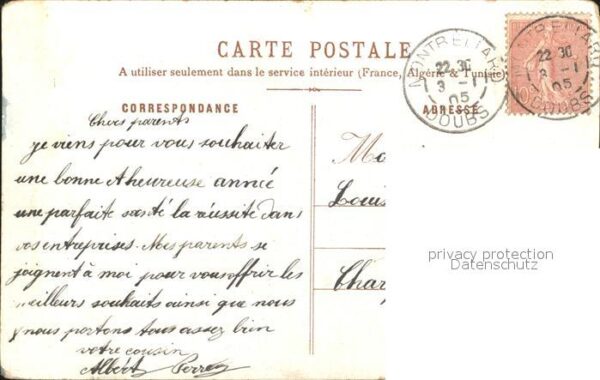 CARTE POSTALE
A utiliser seulement dans le service intérieur (France, Algérie & Tunisie)
CORRESPONDANCE
ADRESSE
MONTBELIARD
22 30
3 - 1
05
DOUBS
MONTBELIARD
22 30
3 - 1
05
DOUBS
10
Chers parents
je viens pour vous souhaiter
une bonne & heureuse année
une parfaite santé la réussite dans
vos entreprises. Mes parents se
joignent à moi pour vous offrir les
meilleurs souhaits ainsi que nous
& nous portons tous assez bien
votre cousin
Albert
Louis
privacy protection
Datenschutz